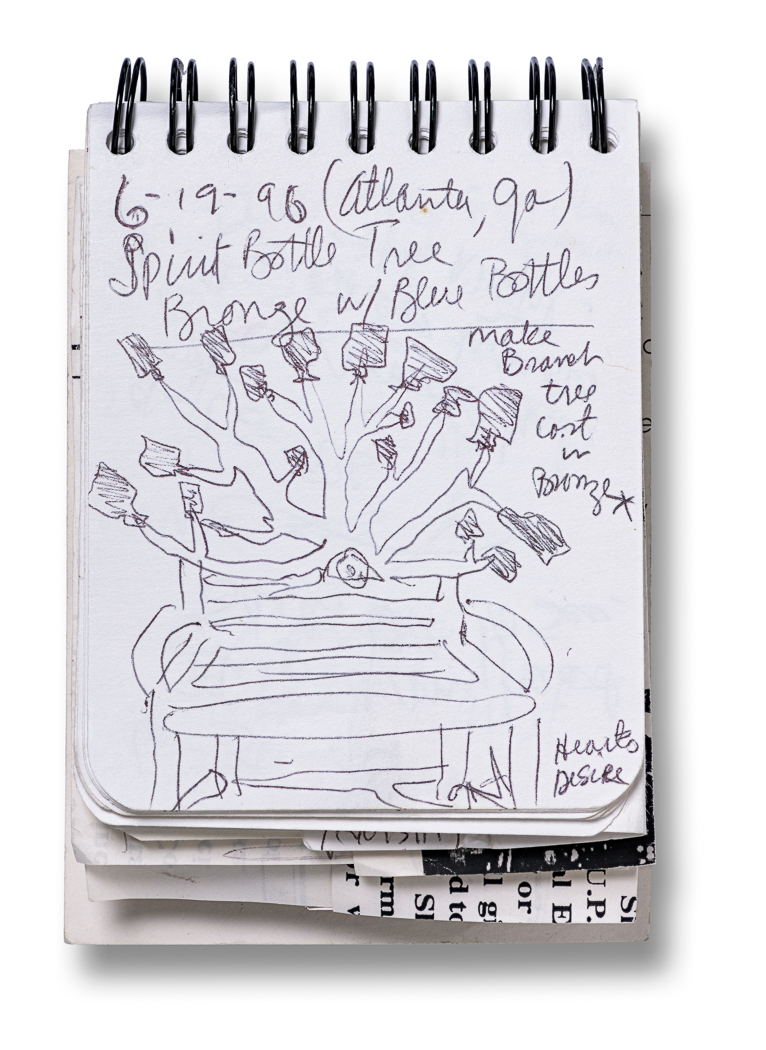 6-19-96 (Atlanta, ga)
Spirit Bottle Tree
Bronze w/ Blue Bottles
make
Branch
tree
Cast
in
Bronze*
Hearts
DESIRE
Si
U.P.
al E
or
l gi
d to
SI
rm
r v